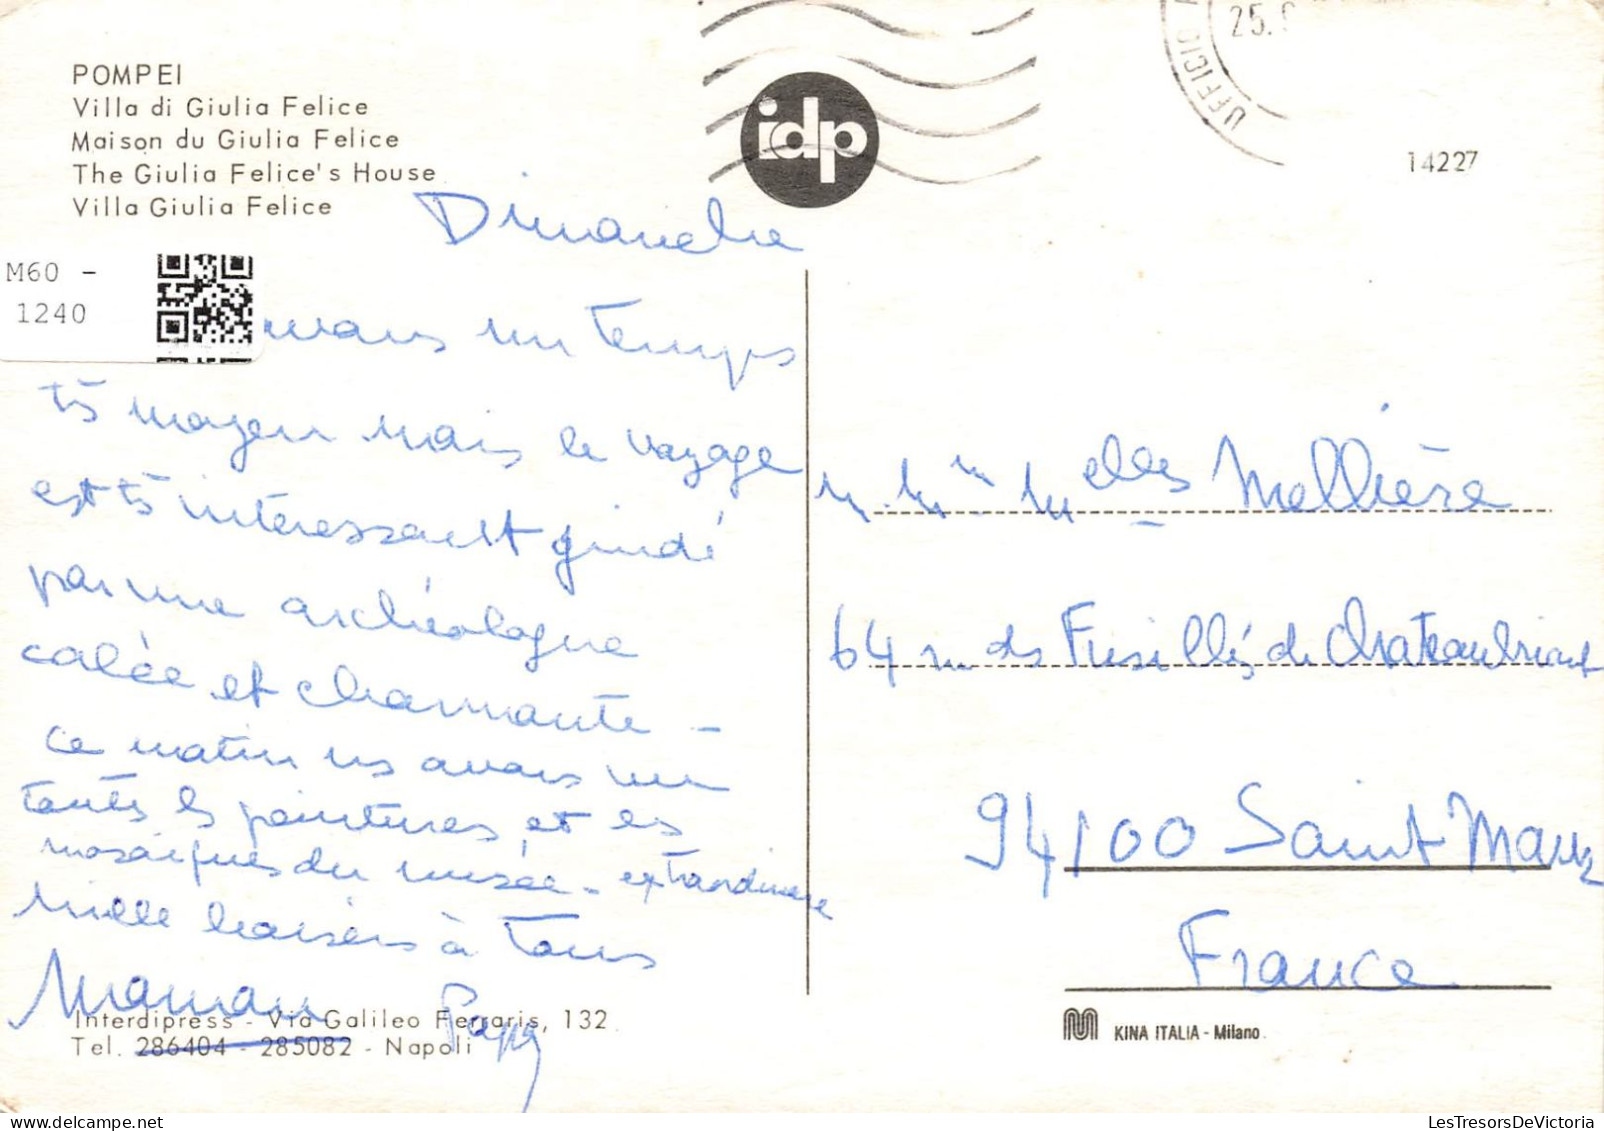 POMPEI
Villa di Giulia Felice
Maison du Giulia Felice
The Giulia Felice's House
Villa Giulia Felice
idp
UFFICIO
25.
14227
M60 -
1240
Dimanche
avons un temps
ts moyen mais le voyage
est ts intéressant guidé
par une archéologue
calée et charmante -
ce matin ns avons vu
toutes ls peintures et es
mosaïques du musée - extraordinaire
mille baisers à tous
Maman Papa
Interdipress - Via Galileo Ferraris, 132
Tel. 286404 - 285082 - Napoli
M. Mme Melles Mellière
64 r. ds Fusillés de Chateaubriant
94100 Saint Maur
France
KINA ITALIA - Milano
LesTresorsDeVictoria.com